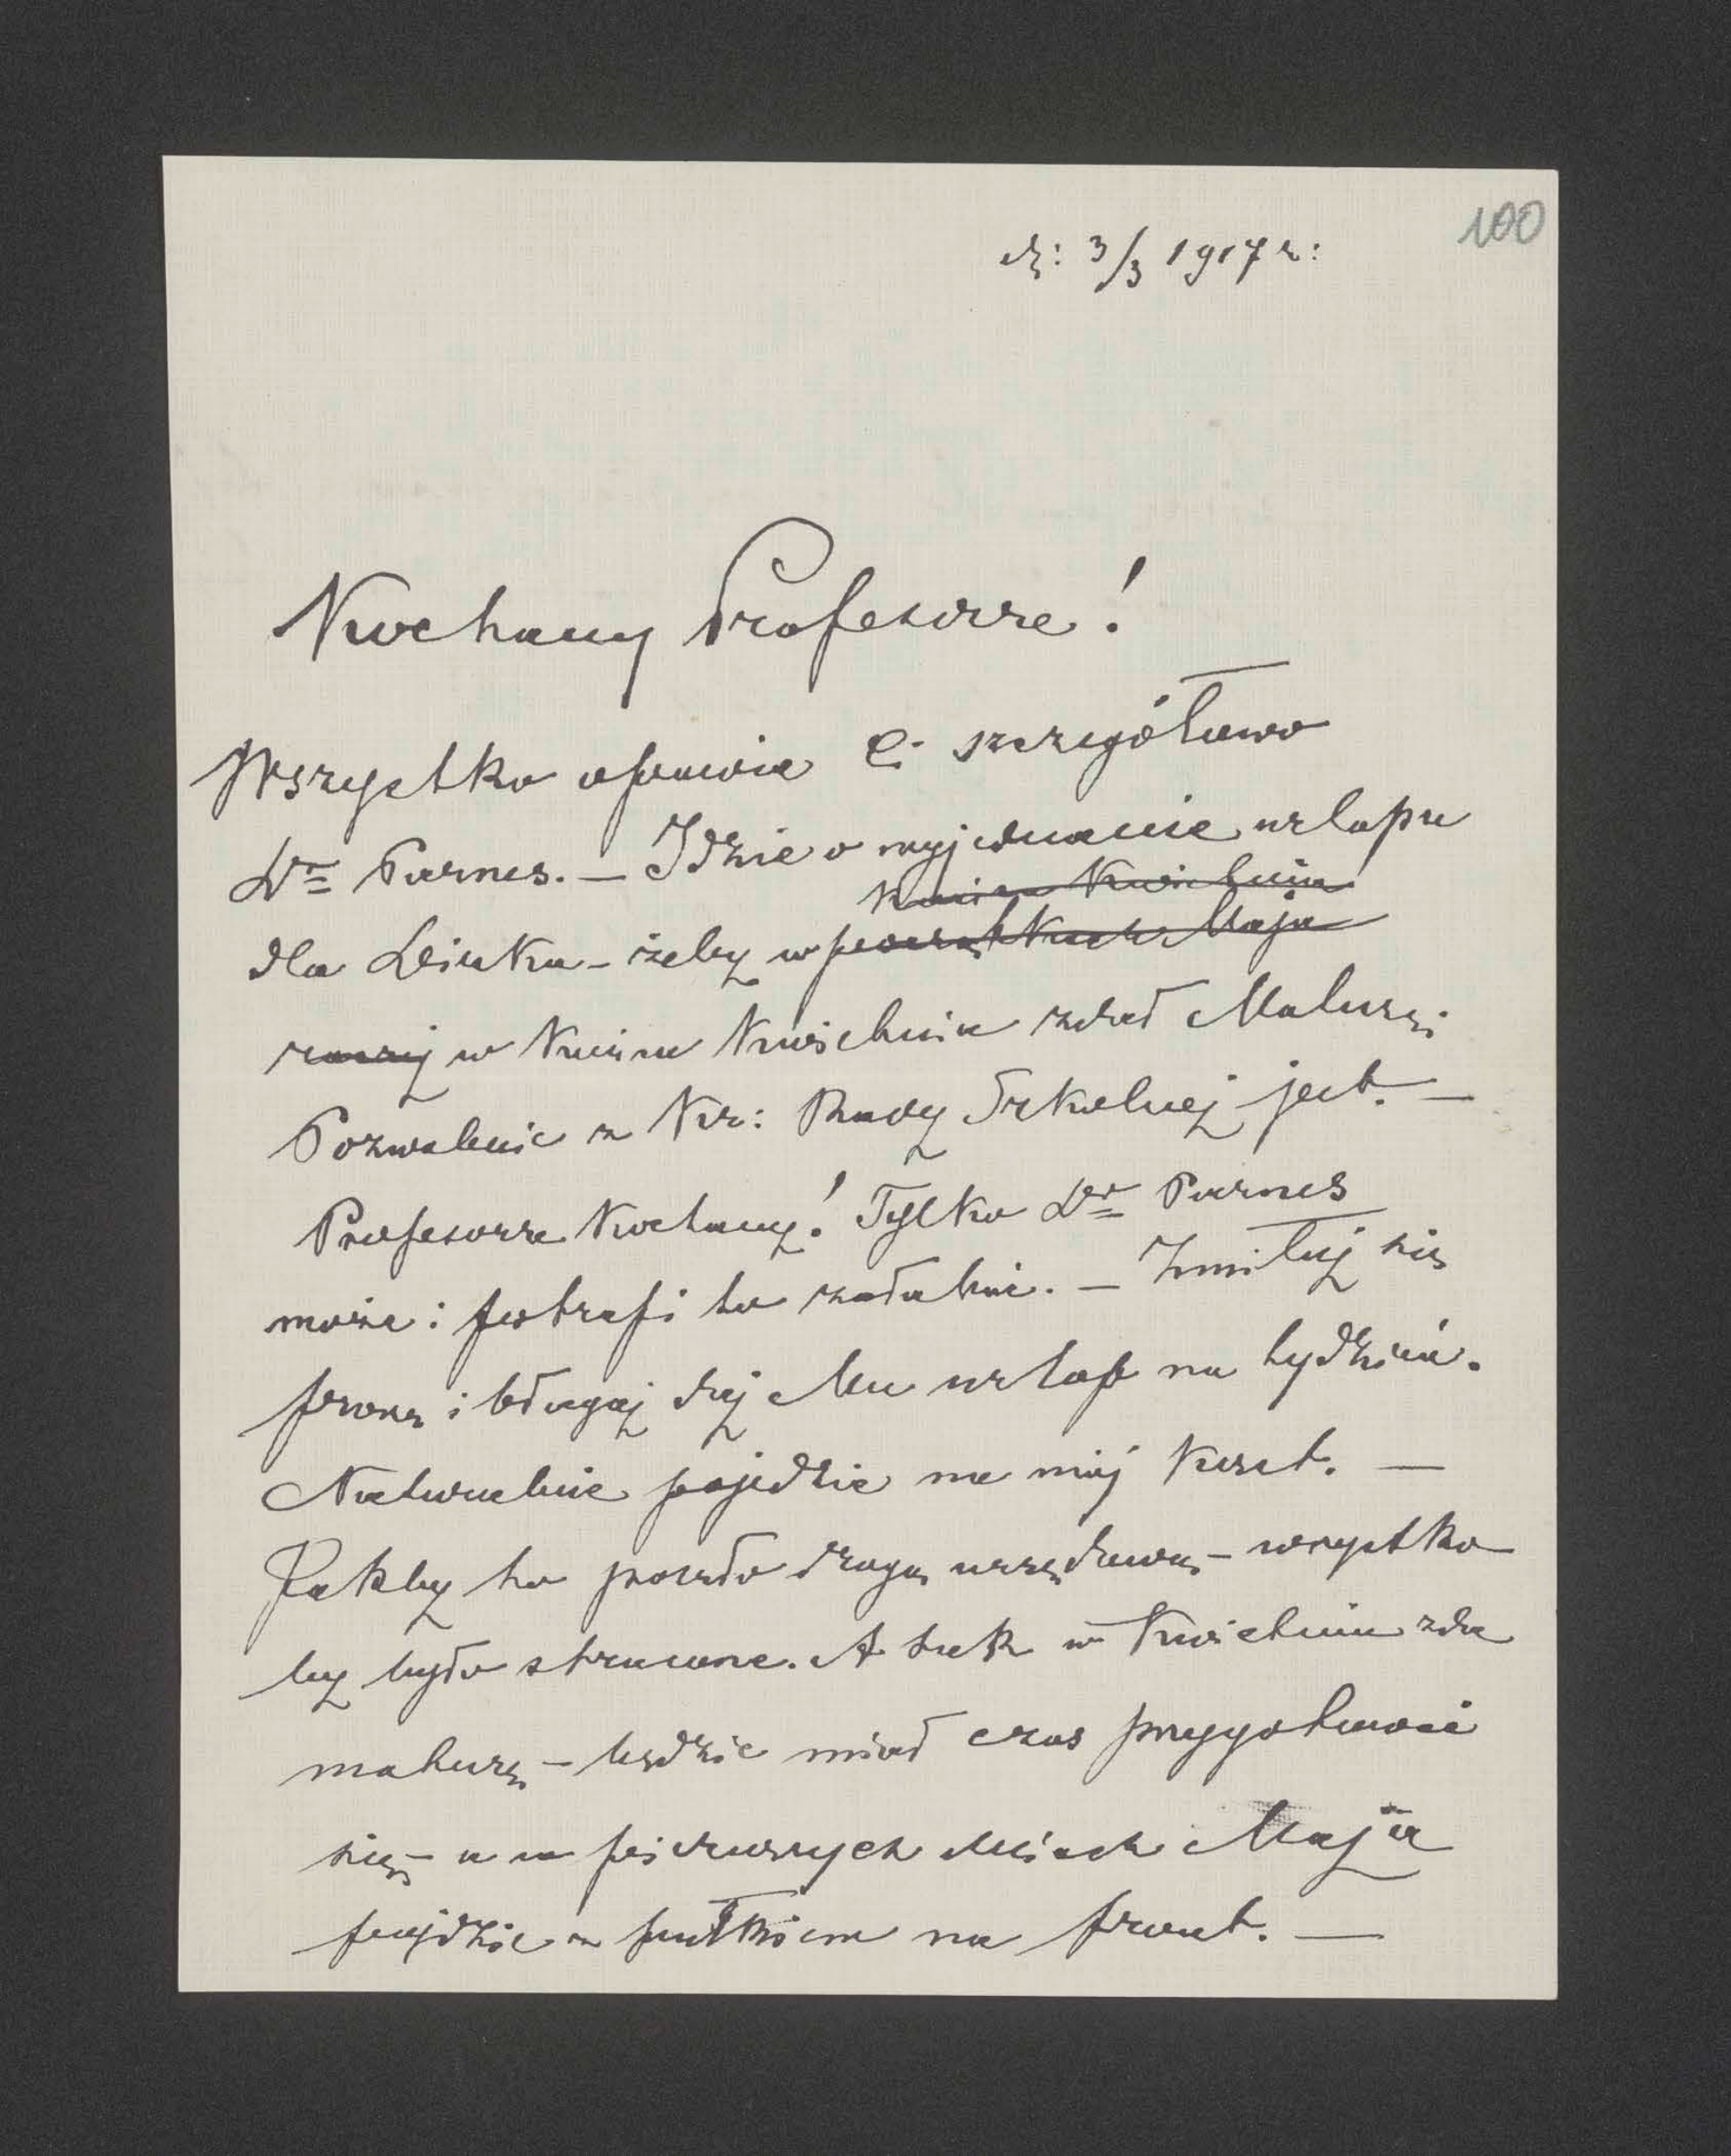 100
dz: 3/3 1917 r:
Kochany Profesorze!
Wszystko opowie Ci szczegółowo
Dr Parnes. — Idzie o wyjednanie urlopu
Końcu Kwietnia
dla Leinka – żeby w początkach Maja
raczej w Końcu Kwietnia zdał Maturę;
Pozwolenie z Kr: Rady Szkolnej jest. —
Profesorze Kochany! Tylko Dr Parnes
może i potrafi to załatwić. — Zmiłuj się
proszę i błagaj daj Mu urlop na tydzień.
Naturalnie pojedzie na mój koszt. —
Jakby to poszło drogą urzędową – wszystko
by było stracone. A tak w Kwietniu zda
maturę – będzie miał czas przygotować
się – a w pierwszych dniach Maja
pójdzie z pułkiem na front. —